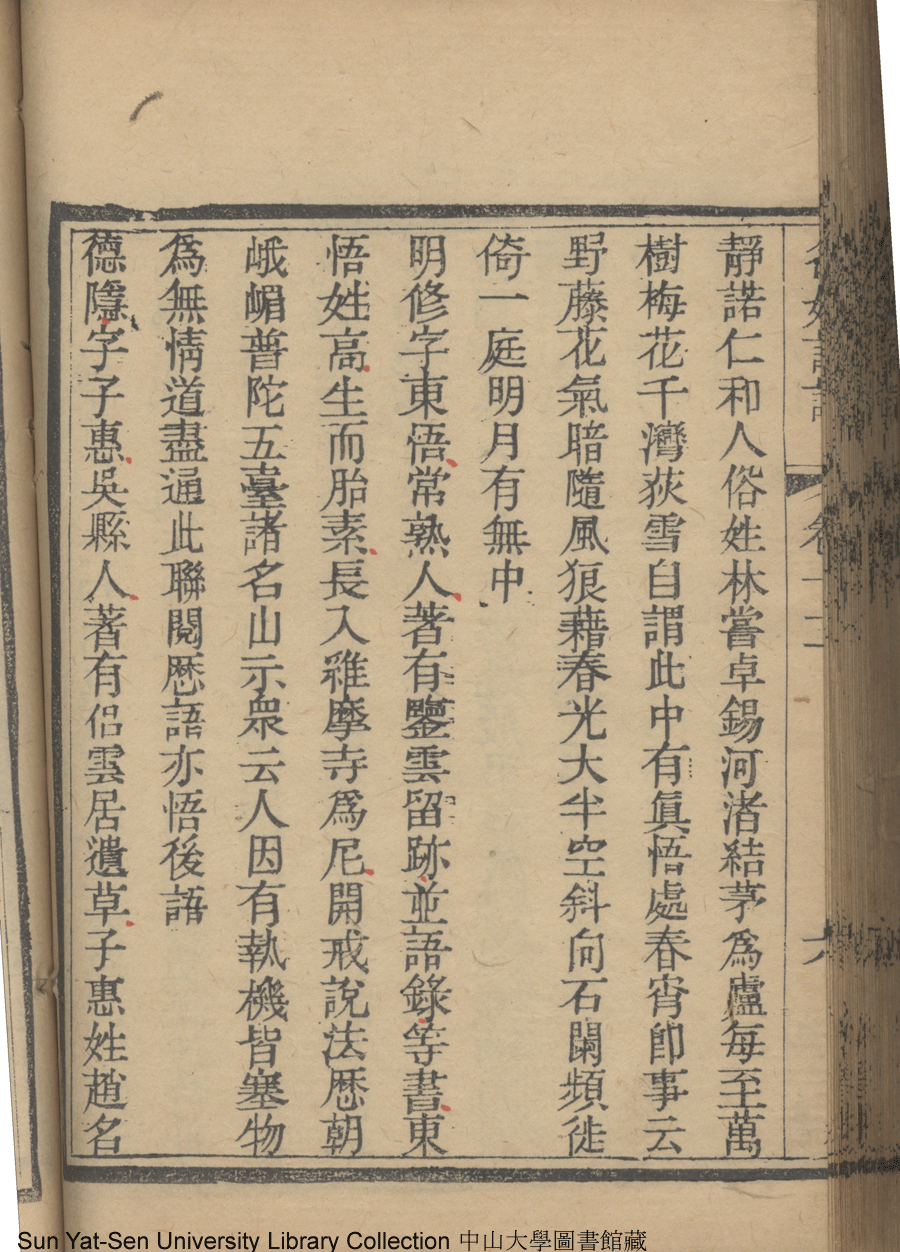 靜諾仁和人俗姓林嘗卓錫河渚結茅爲廬每至萬
樹梅花千灣荻雪自謂此中有眞悟處春宵卽事云
野藤花氣暗隨風狼藉春光大半空斜向石闌頻徙
倚一庭明月有無中
明修字東悟常熟人著有鑒雲留跡並語錄等書東
悟姓高生而胎素長入維摩寺爲尼開戒說法歷朝
峨嵋普陀五臺諸名山示衆云人因有執機皆塞物
爲無情道盡通此聯閱歷語亦悟後語
德隱字子惠吳縣人著有侶雲居遺草子惠姓趙名
Sun Yat-Sen University Library Collection 中山大學圖書館藏